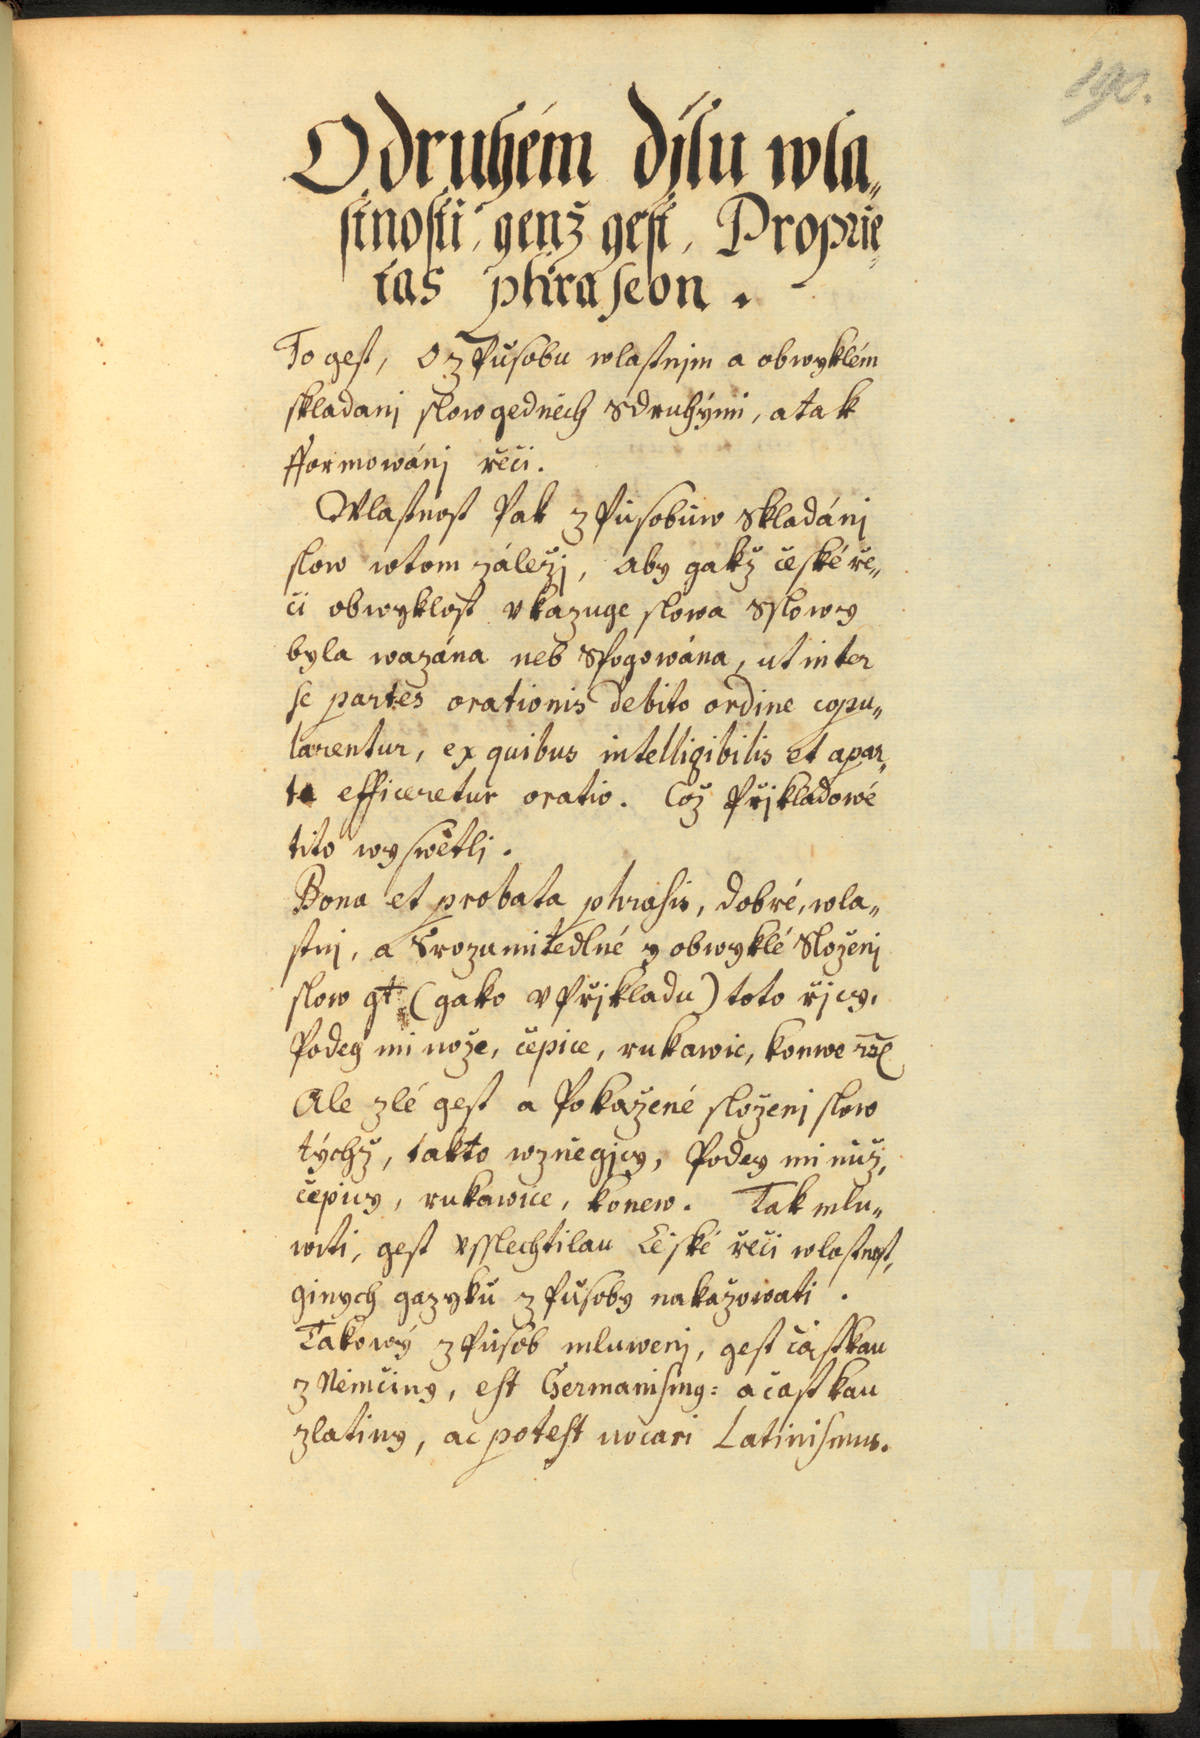 190.
O druhém djlu wla„
stnosti, genž gest, Proprie„
tas phraseon.
To gest, O zpusobu wlastnjm a obwyklém
skladanj slow gedněch s druhými, a tak
fformowánj řeči.
Wlastnost pak zpusobůw skladánj
slow w tom záležj, aby gakž české ře„
či obwyklost vkazuge slowa s slowy
byla wazána neb spogowána, ut inter
se partes orationis debito ordine copu„
larentur, ex quibus intelligibilis et aper„
ta efficeretur oratio. Což přjkladowé
tito wyswětlj.
Bona et probata phrasis, dobré, wla„
stnj, a srozumitedlné y obwyklé složenj
slow gt: (gako v přjkladu) toto řjcy.
Podeg mi nože, čepice, rukawic, konwe
Ale zlé gest a pokažené složenj slow
týchž, takto wzněgjcy, Podey mi nůž,
čepicy, rukawice, konew. Tak mlu„
witi, gest vsslechtilau České řeči wlastnost,
ginych gazyků zpusoby nakažowati.
Takowý zpusob mluwenj, gest částkau
z Němčiny, est Germanismg: a částkau
z latiny, ac potest uocari Latinismus.
MZK
MZK